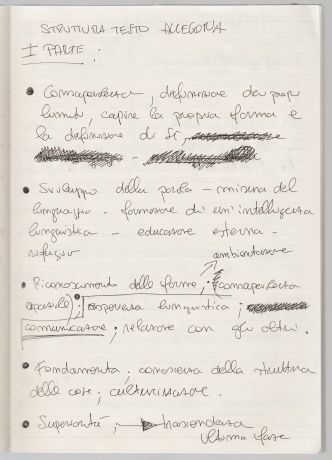 STRUTTURA TESTO ALLEGORIA
I PARTE:
• Consapevolezza, definizione dei propri
limiti, capire la propria forma e
la definizione di sé,
• Sviluppo della parola - misura del
linguaggio - formazione di un'intelligenza
linguistica - educazione esterna -
rifugio
ambientazione
• Riconoscimento delle forme, consapevolezza
spaziale; esperienza linguistica;
comunicazione; relazione con gli altri.
• Fondamenta; conoscenza della struttura
delle cose;
• Superiorità; trascendenza
Ultima fase